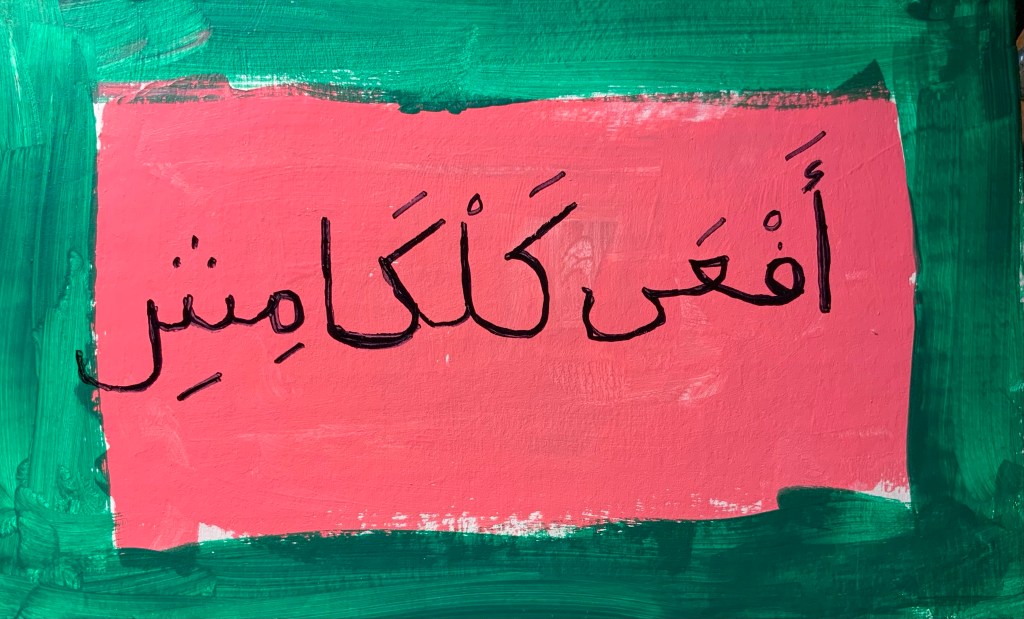 أَفْعَى كَلْكَامِشِ